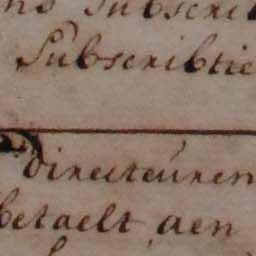 Subscri
Subscribtie
directeuren
betaelt aen